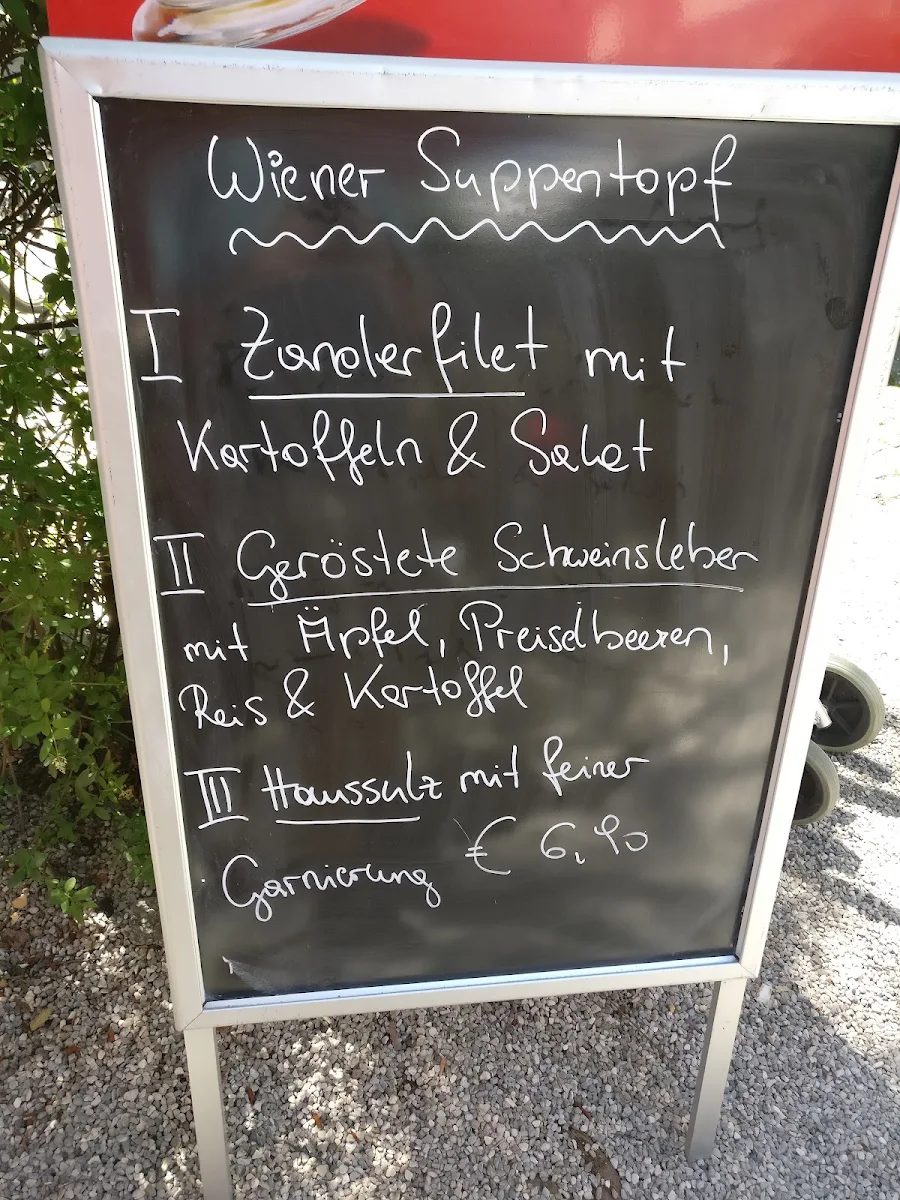 Wiener Suppentopf
I Zanderfilet mit
Kartoffeln & Salat
II Geröstete Schweinsleber
mit Äpfel, Preiselbeeren,
Reis & Kartoffel
III Haussulz mit feiner
Garnierung € 6,90